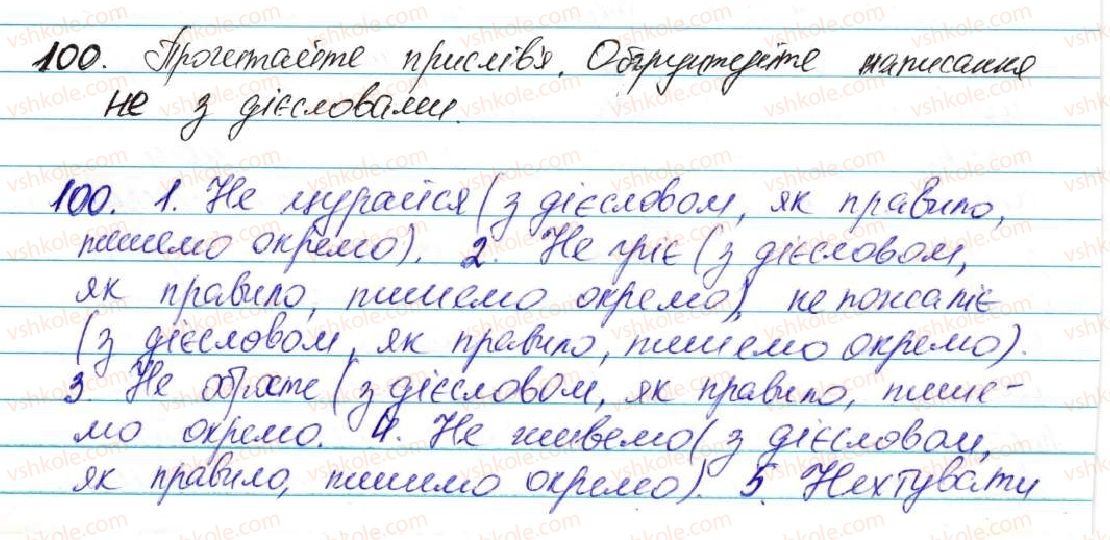 100. Прочитайте прислів'я. Обґрунтуйте написання
не з дієсловами.
100. 1. Не цурайся (з дієсловом, як правило,
пишемо окремо). 2. Не гріє (з дієсловом,
як правило, пишемо окремо), не пожаліє
(з дієсловом, як правило, пишемо окремо).
3. Не обросте (з дієсловом, як правило, пише-
мо окремо. 4. Не живемо (з дієсловом,
як правило, пишемо окремо). 5. Нехтувати